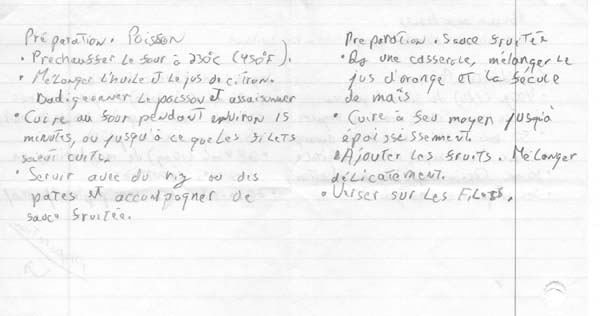 Préparation. Poisson
• Prechausser le four à 230°C (450°F).
• Mélanger l'huile et le jus de citron.
Badigeonner le poisson et assaisonner
• Cuire au four pendant environ 15
minutes, ou jusqu'à ce que les filets
soient cuits.
• Servir avec du riz ou des
pates et accompagner de
sauce fruitée.
Preparation. Sauce fruitée
• Ds une casserole, mélanger le
jus d'orange et la fécule
de maïs
• Cuire à feu moyen jusqu'à
épaississement.
• Ajouter les fruits. Mélanger
délicatement.
• Verser sur les Filets.